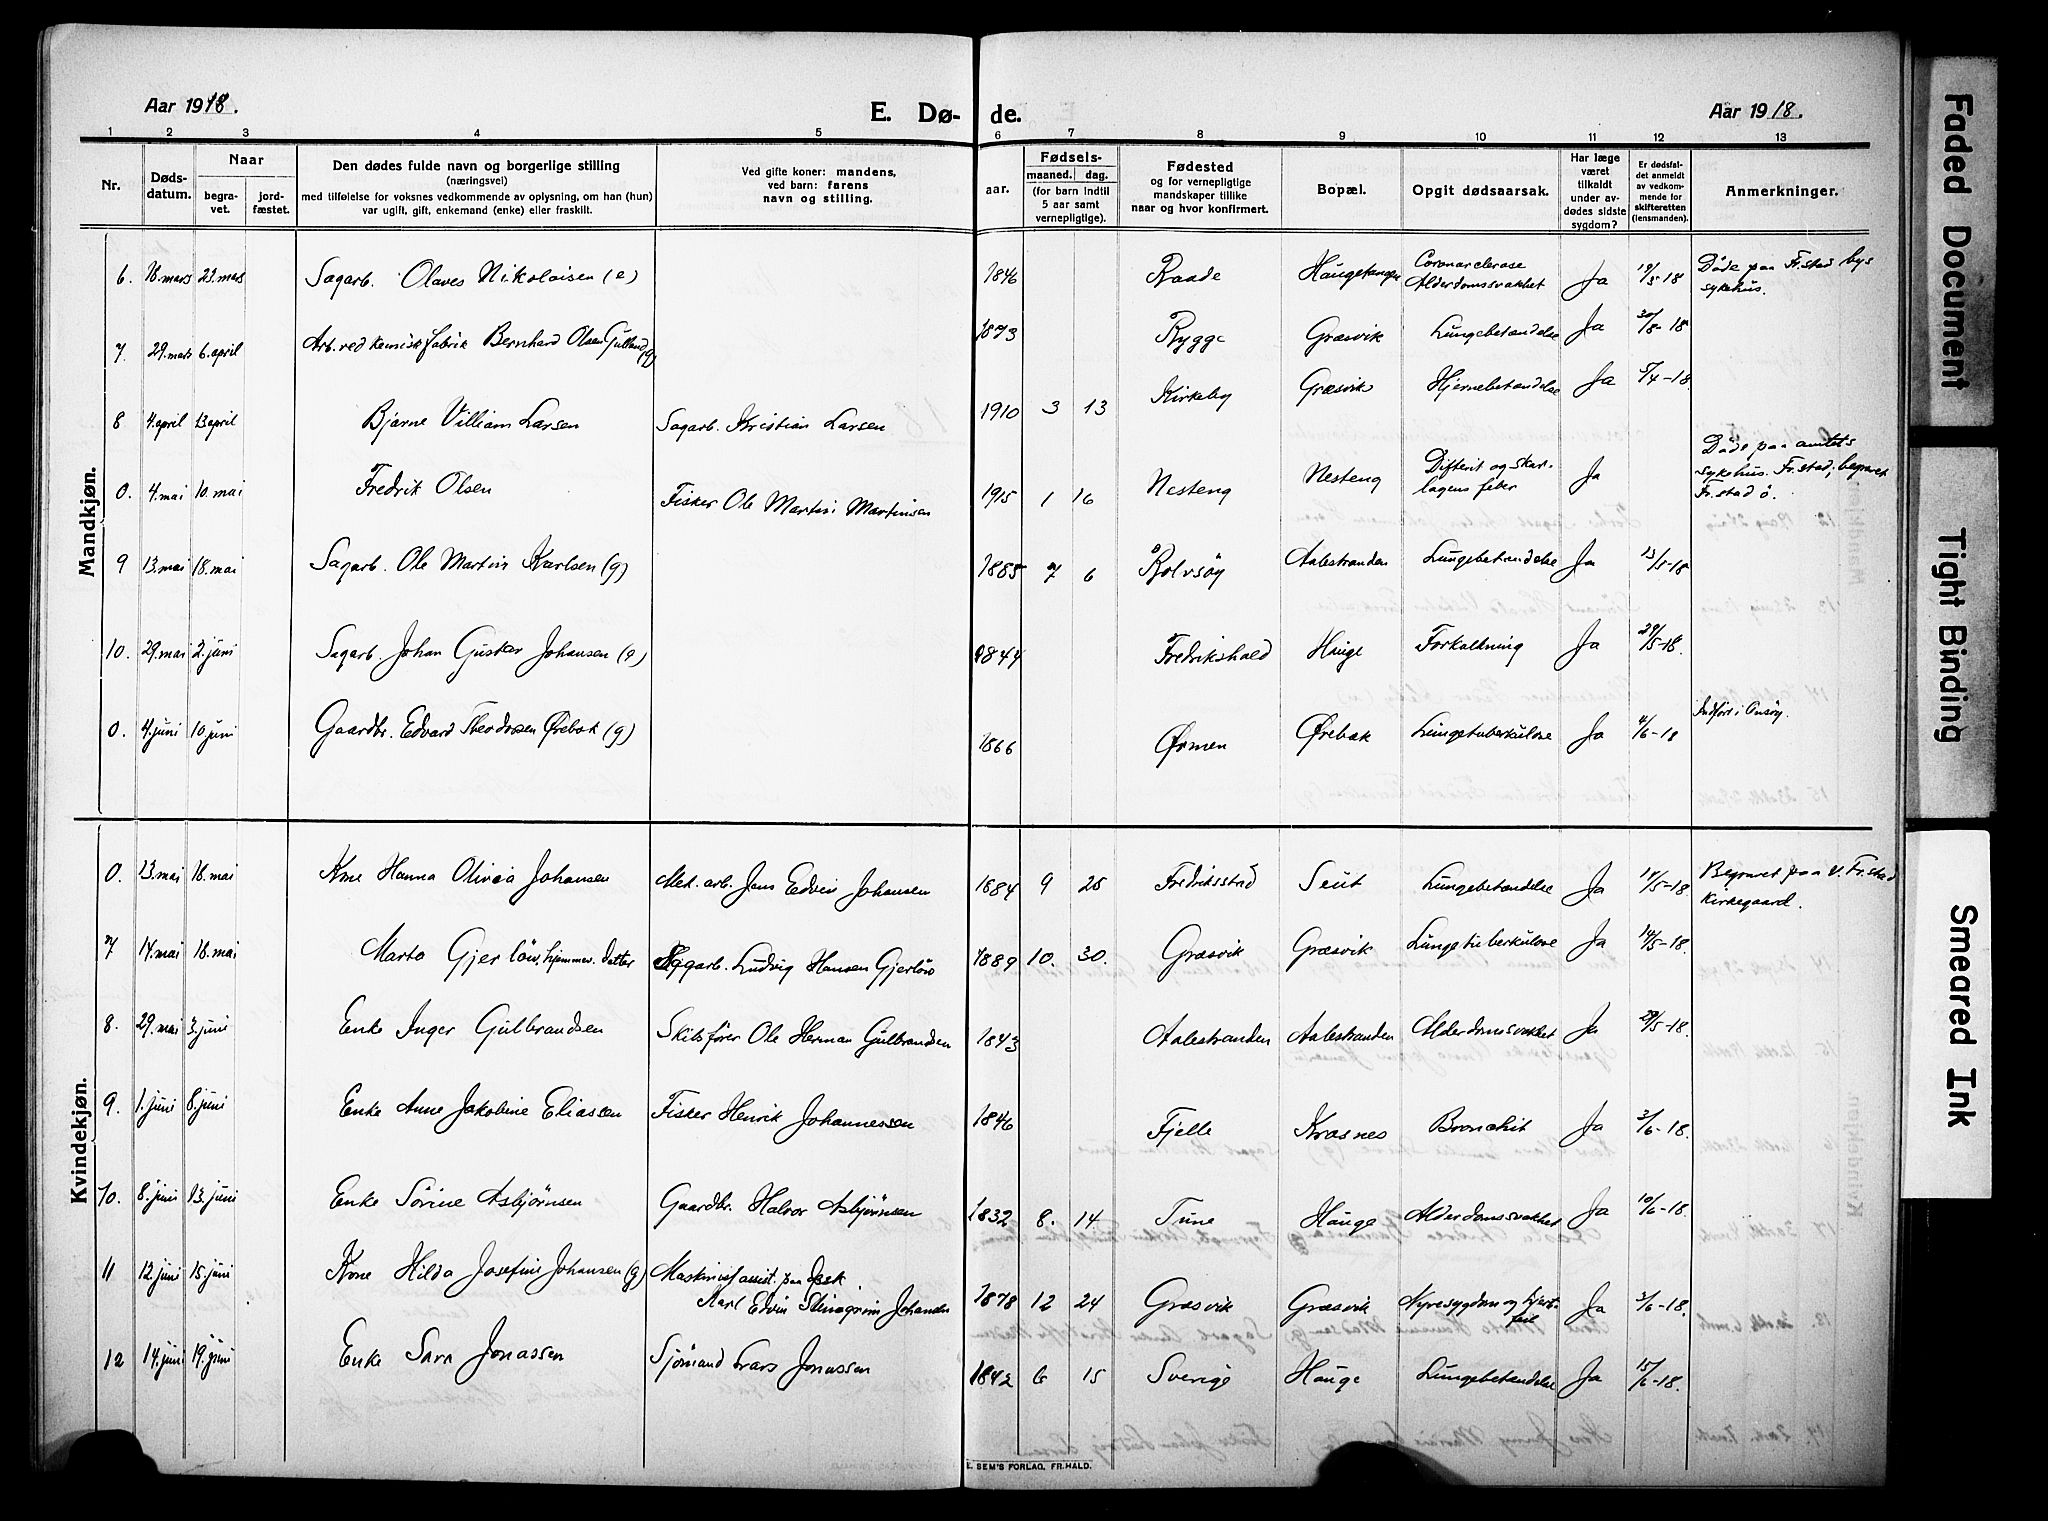 Aar 1918.
E. Dø- de.
Aar 1918.
1 2 3 4 5 6 7 8 9 10 11 12 13
Nr.
Døds-
datum.
Naar
begra-
vet.
jord-
fæstet.
Den dødes fulde navn og borgerlige stilling
(næringsvei)
med tilføielse for voksnes vedkommende av oplysning, om han (hun)
var ugift, gift, enkemand (enke) eller fraskilt.
Ved gifte koner: mandens,
ved barn: farens
navn og stilling.
aar.
Fødsels-
maaned. dag.
(for barn indtil
5 aar samt
vernepligtige).
Fødested
og for vernepligtige
mandskaper tillike
naar og hvor konfirmert.
Bopæl.
Opgit dødsaarsak.
Har læge
været
tilkaldt
under av-
dødes sidste
sygdom?
Er dødsfal-
det anmeldt
av vedkom-
mende for
skifteretten
(lensmanden).
Anmerkninger.
Mandkjøn.
6. 18. mars 23. mars Sagarb. Olaves Nikolaisen (e) 1846 Raade Haugetangen Coronarclerose Alderdomssvakhet Ja 19/3-18 Døde paa Fr.stad bys sykehus.
7. 29. mars 6. april Arb. ved kemisk fabrik Bernhard Olsen Gulland (g) 1873 Rygge Græsvik Lungebetændelse Ja
8 4. april 13 april Bjarne Villiam Larsen Sagarb. Kristian Larsen 1910 3 13 Kirkeby Græsvik Hjernebetændelse Ja 5/4-18
0. 4. mai 10. mai Fredrik Olsen Fisker Ole Martin Martinsen 1915 1 16 Nesteng Nesteng Difterit og skar- lagens feber Ja Døde paa amtets sykehus. Fr.stad, begravet Fr.stad ø.
9 13. mai 18. mai Sagarb. Ole Martin Karlsen (g) 1885 7 6 Rolvsøy Aalestranden Lungebetændelse Ja 13/5-18
10. 29. mai 2. juni Sagarb. Johan Gustav Johansen (e) 1844 Fredrikshald Hauge Forkalkning Ja 29/5-18.
0. 4. juni 10 juni Gaardbr. Edvard Theodorsen Ørebæk (g) 1866 Ørmen Ørebæk Lungetuberkulose Ja 4/6-18 Indført i Onsøy.
Kvindekjøn.
0. 13. mai 18. mai Kone Hanna Olivia Johansen Mek. arb. Jens Edvin Johansen 1884 9 25 Fredriksstad Seut Lungebetændelse Ja 14/5-18 Begravet paa V. Fr.stad kirkegaard.
7 14. mai 18. mai Marta Gjerløv, hjemmev. datter Sagarb. Ludvig Hansen Gjerløv 1889 10. 30. Græsvik Græsvik Lungetuberkulose Ja 14/5-18.
8. 29. mai 3. juni Enke Inger Gulbrandsen Skibsfører Ole Herman Gulbrandsen 1843 Aalestranden Aalestranden Alderdomssvakhet Ja 29/5-18.
9. 1. juni 8. juni Enke Anne Jakobine Eliassen Fisker Henrik Johannessen 1846 Fjelle Krosnes Bronchit Ja 3/6-18.
10. 8. juni 13. juni Enke Sørine Asbjørnsen Gaardbr. Halvor Asbjørnsen 1832 8. 14. Tune Hauge Alderdomssvakhet Ja 10/6-18.
11 12. juni 15. juni Kone Hilda Josefine Johansen (g) Maskinist assist. paa Karl Edvin Johansen 1878 12 24 Græsvik Græsvik Nyresygdom og hjerte- feil Ja
12 14. juni 19. juni Enke Sara Jonassen Sjømand Lars Jonassen 1842 6 15 Sverige Hauge Lungebetændelse Ja 15/6-18.
E. SEM'S FORLAG, FR.HALD.
Faded Document
Tight Binding
Smeared Ink